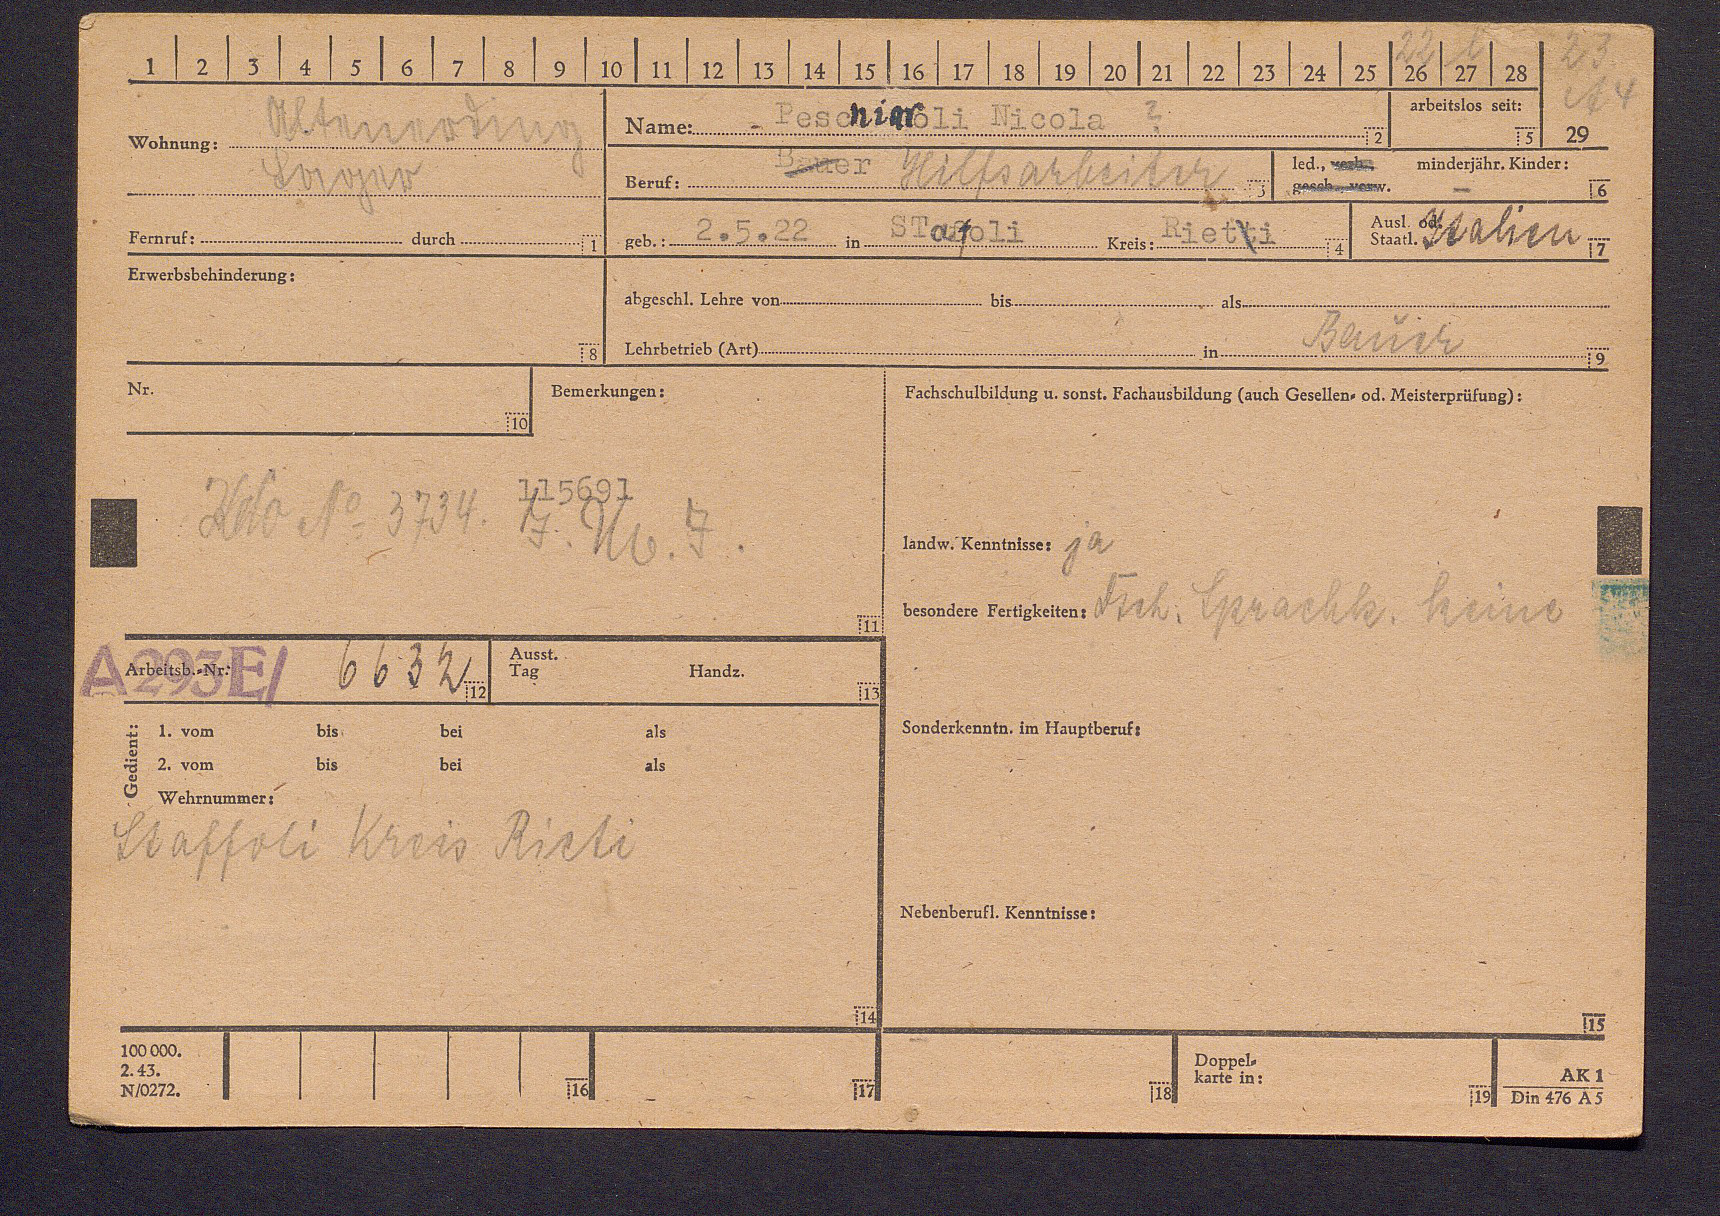 1 2 3 4 5 6 7 8 9 10 11 12 13 14 15 16 17 18 19 20 21 22 23 24 25 26 27 28 29
22 23
Wohnung: Altenerding
Name: Nicola ? 2
arbeitslos seit: 5
Beruf: Bauer Hilfsarbeiter 3
led., verh. gesch. verw. minderjähr. Kinder: – 6
Fernruf: durch 1
geb.: 2.5.22 in STaffoli Kreis: Rietti 4
Ausl. od. Staatl. Italien 7
Erwerbsbehinderung:
8
abgeschl. Lehre von bis als
Lehrbetrieb (Art) in Bauer 9
Nr.
10
Bemerkungen:
115691
No 3734.
11
Fachschulbildung u. sonst. Fachausbildung (auch Gesellen- od. Meisterprüfung):
landw. Kenntnisse: ja
besondere Fertigkeiten: Dtsch. Sprachk. keine
A293E/
Arbeitsb.-Nr: 6632 12
Ausst. Tag Handz. 13
Gedient:
1. vom bis bei als
2. vom bis bei als
Wehrnummer:
Staffoli Kreis Rieti
14
Sonderkenntn. im Hauptberuf:
Nebenberufl. Kenntnisse:
15
100 000.
2. 43.
N/0272.
16 17 18
Doppel-
karte in: 19
AK 1
Din 476 A 5